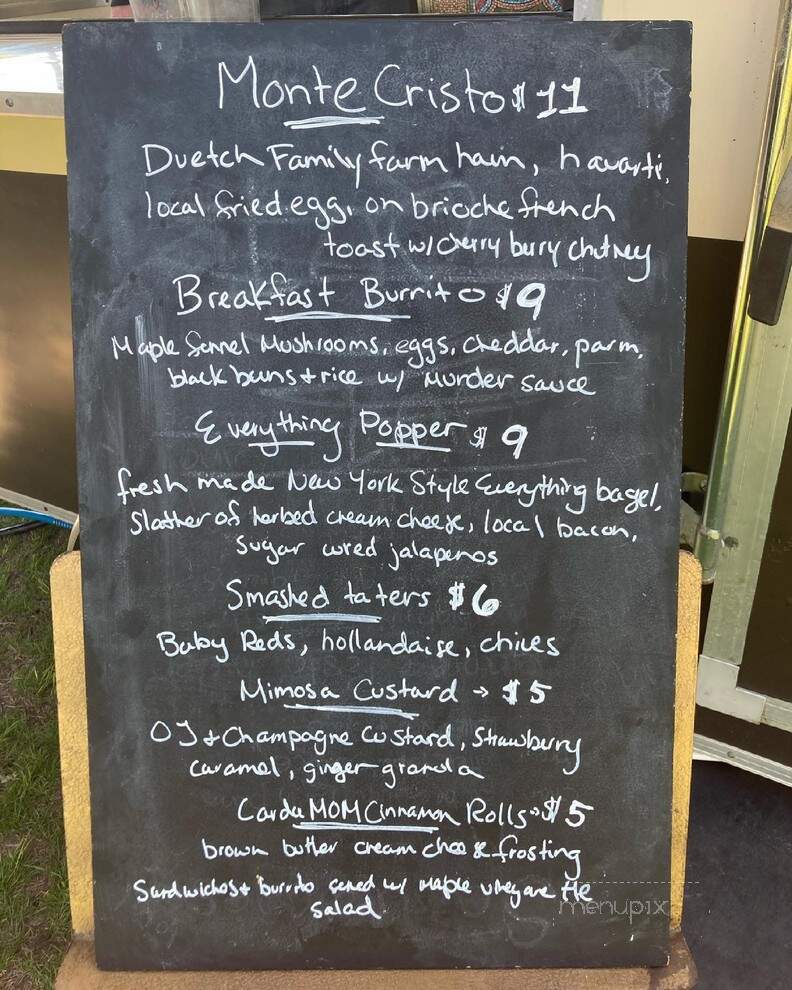 Monte Cristo $11
Duetch Family farm ham, havarti,
local fried egg, on brioche french
toast w/ cherry bury chutney
Breakfast Burrito $9
Maple fennel Mushrooms, eggs, cheddar, parm,
black beans + rice w/ Murder sauce
Everything Popper $9
fresh made New York Style Everything bagel,
Slather of herbed cream cheese, local bacon,
Sugar cured jalapenos
Smashed taters $6
Baby Reds, hollandaise, chives
Mimosa Custard → $5
OJ + Champagne Custard, Strawberry
caramel, ginger granola
CardaMOM Cinnamon Rolls → $5
brown butter cream cheese frosting
Sandwiches + burrito served w/ Maple vinegarette
salad
menupix